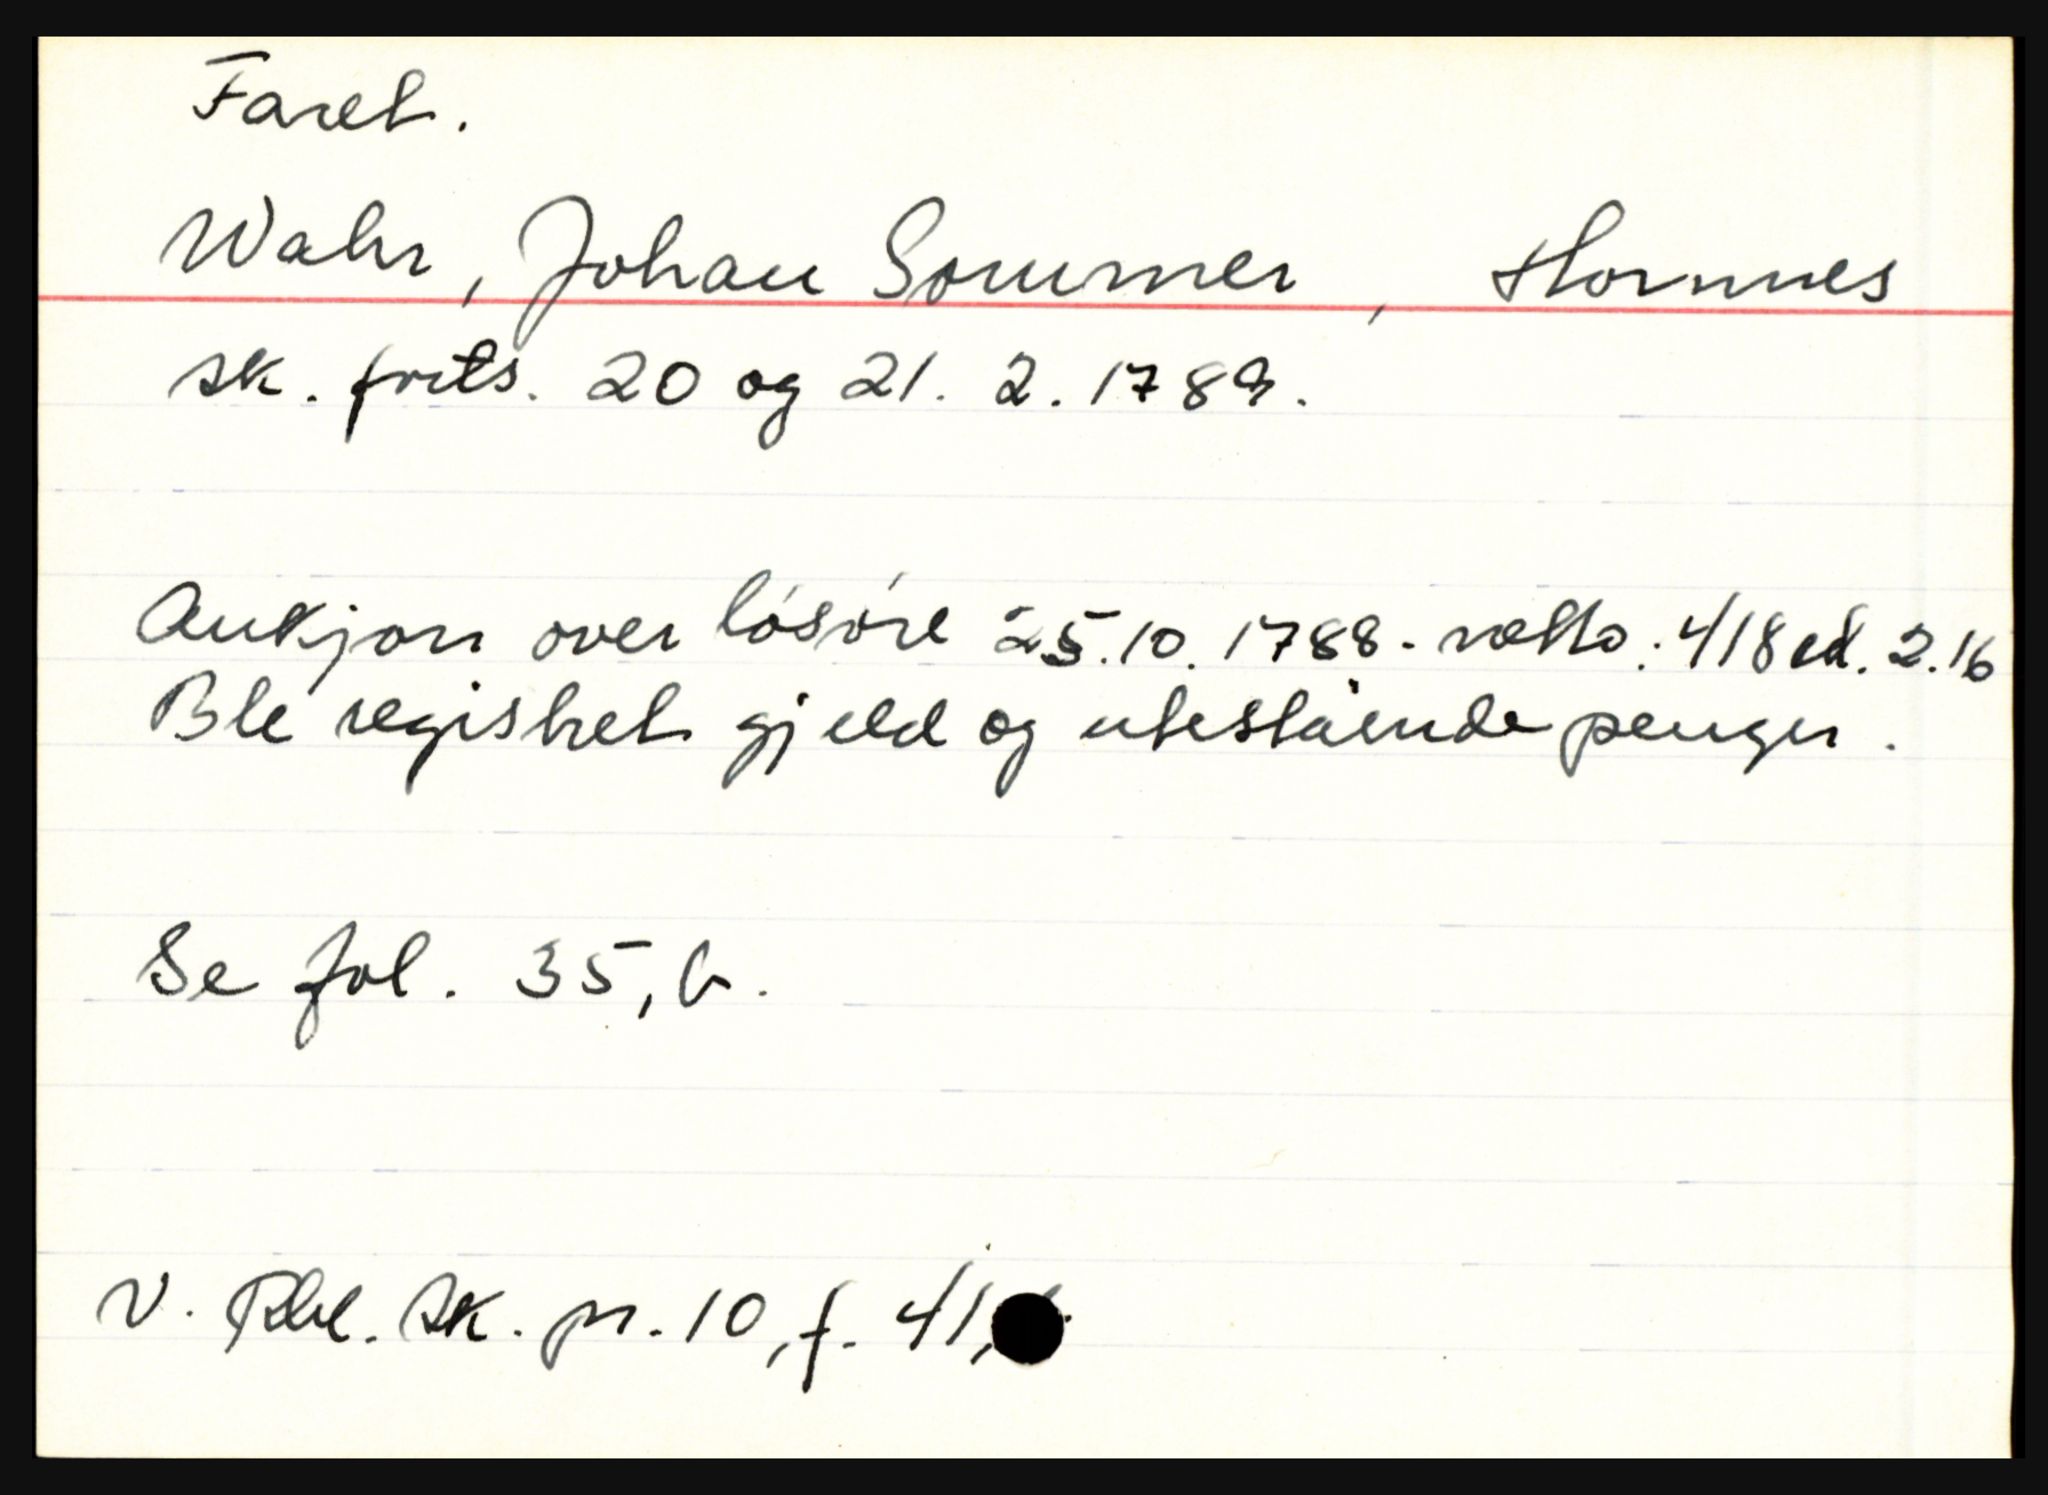 Faret.
Wahr, Johan Sommer, Hornnes
sk. forts. 20 og 21. 2. 1789.
Aukjon over løsøre 25.10.1788. netto: 418 rd. 2.16
Ble registret gjeld og utestående penger.
Se fol. 35, b.
V. Rbl. sk. pr. 10, f. 41,